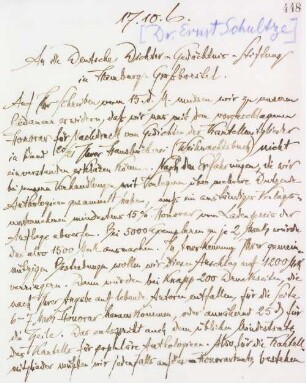 448
17.10.6.
[Dr. Ernst Schultze]
An die Deutsche Dichter-Gedächtnis-Stiftung
in Hamburg-Großborstel.
Auf Ihr Schreiben vom 13. d. M. müssen wir zu unserem
Bedauern erwidern, daß wir uns mit dem vorgeschlagenen
Honorar für Nachdruck von Gedichten der Kartellmitglieder
in Band Ihrer Hausbücherei nicht
einverstanden erklären können. Nach den Erfahrungen, die wir
bei unseren Verhandlungen mit Verlegern über mehrere Dutzend
Anthologien gesammelt haben, muß ein anständiges Verlags-
unternehmen mindestens 15% Honorar vom Ladenpreis der
Auflage abwerfen. Bei 5000 Exemplaren zu je 2 Mark würde
das also 1500 Mark ausmachen. In Anerkennung Ihrer gemein-
nützigen Bestrebungen wollen wir diesen Anschlag auf 1200 Mk
verringern. Dann würden bei knapp 200 Druckseiten, die
nach Ihrer Angabe auf lebende Autoren entfallen, für die Seite
6-7 Mark Honorar herauskommen, oder annähernd 25 d für
die Zeile. Das entspricht auch dem üblichen Mindestsatz
des Kartells für populäre Anthologien. Also für die Kartell-
mitglieder müßten wir jedenfalls auf dem Honorarsatz bestehen